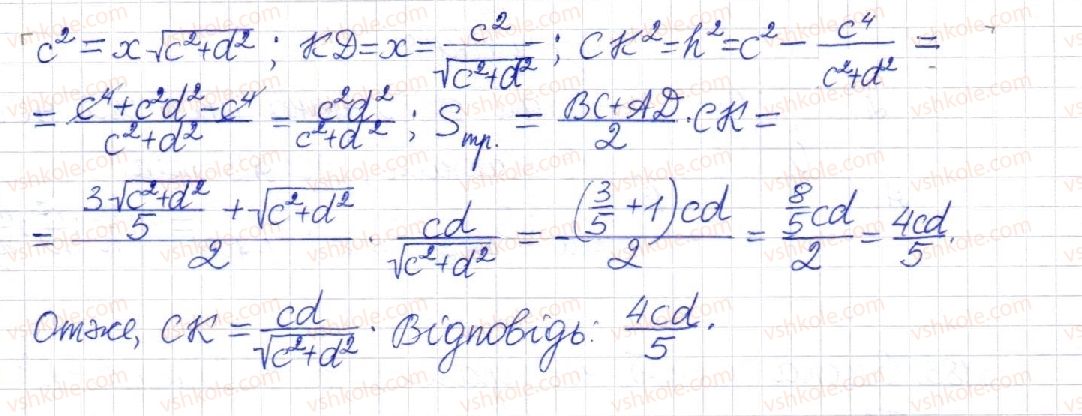 c² = x√(c²+d²); КД = x = c²/√(c²+d²); СК² = h² = c² − c⁴/(c²+d²) =
= (c⁴+c²d²−c⁴)/(c²+d²) = c²d²/(c²+d²); Sтр. = (ВС+АД)/2 · СК =
= (3√(c²+d²)/5 + √(c²+d²))/2 · cd/√(c²+d²) = ((3/5+1)cd)/2 = (8/5 cd)/2 = 4cd/5.
Отже, СК = cd/√(c²+d²). Відповідь: 4cd/5.